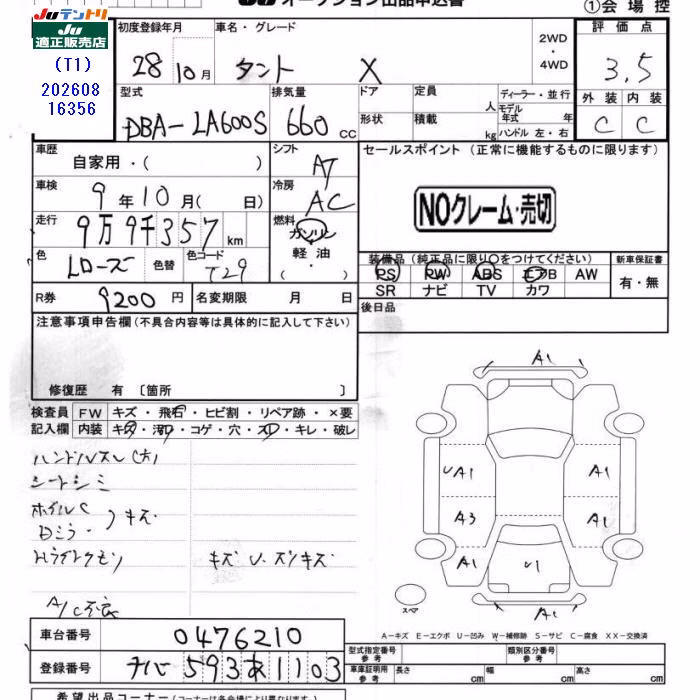 JUテントリ
JU オークション出品申込書
①会場控
適正販売店
(T1)
202608
16356
初度登録年月 車名・グレード 2WD・4WD 評価点
28 10月 タント X 3.5
型式 排気量 ドア 定員 人 ディーラー・並行
モデル年式 年
外装 内装
DBA-LA600S 660 cc 形状 積載 kg ハンドル 左・右 C C
車歴 シフト セールスポイント(正常に機能するものに限ります)
自家用・( ) AT
車検 冷房
9年10月( 日) AC
NOクレーム・売切
走行 燃料
9万9千357km ガソリン
軽油
( ・ )
色 色替 色コード
Lローズ T29
装備品(純正品に限り○をつけてください) 新車保証書
PS PW ABS エアB AW 有・無
SR ナビ TV カワ
R券 9200円 名変期限 月 日
後日品
注意事項申告欄(不具合内容等は具体的に記入して下さい)
修復歴 有〔箇所 〕
検査員 FW キズ・飛石・ヒビ割・リペア跡・×要
記入欄 内装 キズ・汚れ・コゲ・穴・スレ・キレ・破レ
ハンドルスレ(大)
シートシミ
ホイルC
Dミラー )キズ
Hライトクモリ
キズU.スリキズ
A/C不良
A1
UA1 A1
A3 A1
A1 U1 A1
スペア A1
A-キズ E-エクボ U-凹み W-補修跡 S-サビ C-腐食 XX-交換済
車台番号 0476210
登録番号 チバ593あ1103
型式指定番号 参考 類別区分番号 参考
車庫証明用 参考 長さ cm 幅 cm 高さ cm
希望出品コーナー(コーナーは各会場により異なります)